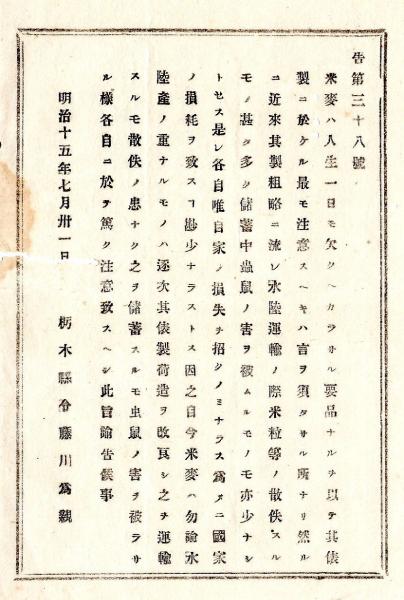 告第三十八號
米麥ハ人生一日モ欠クヘカラサル要品ナルヲ以テ其俵
製ニ於ケル最モ注意スヘキハ言ヲ須タサル所ナリ然ル
ニ近來其製粗略ニ流レ水陸運輸ノ際米粒等ノ散佚スル
モノ甚タ多ク儲蓄中蟲鼠ノ害ヲ被ムルモノモ亦少ナシ
トセス是レ各自唯自家ノ損失ヲ招クノミナラス爲メニ國家
ノ損耗ヲ致スヿ尠少ナラストス因之自今米麥ハ勿論水
陸產ノ重ナルモノハ逐次其俵製荷造ヲ改良シ之ヲ運輸
スルモ散佚ノ患ナク之ヲ儲蓄スルモ虫鼠ノ害ヲ被ラサ
ル樣各自ニ於テ篤ク注意致スヘシ此旨諭告候事
明治十五年七月卅一日 栃木縣令藤川爲親